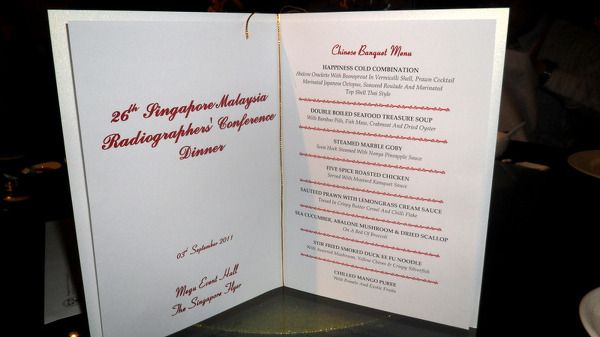 26th Singapore Malaysia
Radiographers' Conference
Dinner
03rd September 2011
Mega Event Hall
The Singapore Flyer
Chinese Banquet Menu
HAPPINESS COLD COMBINATION
Abalone Crockets With Beansprout In Vermicelli Shell, Prawn Cocktail
Marinated Japanese Octopus, Seaweed Roulade And Marinated
Top Shell Thai Style
DOUBLE BOILED SEAFOOD TREASURE SOUP
With Bamboo Pith, Fish Maw, Crabmeat And Dried Oyster
STEAMED MARBLE GOBY
Soon Hock Steamed With Nonya Pineapple Sauce
FIVE SPICE ROASTED CHICKEN
Served With Mustard Kumquat Sauce
SAUTEED PRAWN WITH LEMONGRASS CREAM SAUCE
Tossed In Crispy Butter Cereal And Chilli Flake
SEA CUCUMBER, ABALONE MUSHROOM & DRIED SCALLOP
On A Bed Of Broccoli
STIR FRIED SMOKED DUCK EE FU NOODLE
With Assorted Mushroom, Yellow Chives & Crispy Silverfish
CHILLED MANGO PUREE
With Pomelo And Exotic Fruits